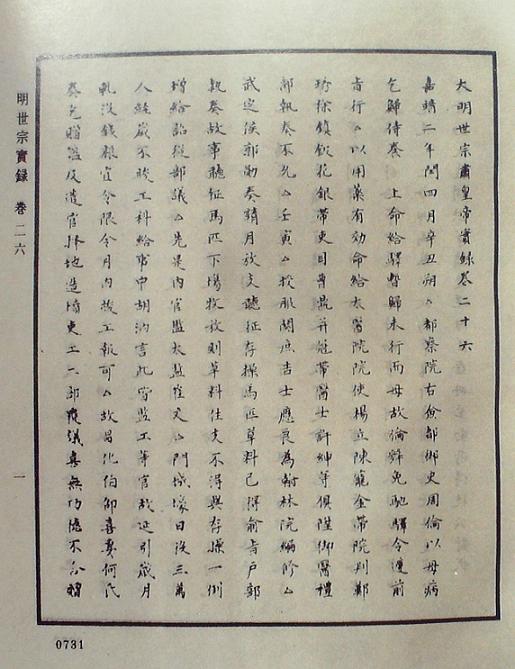 大明世宗肅皇帝實錄卷二十六
嘉靖二年閏四月辛丑朔△都察院右僉都御史周倫以母病
乞歸侍養　上命給驛暫歸未行而母故倫辭免馳驛令還前
旨行△以用藥有効命給太醫院院使楊立陳寵金帶院判鄭
徐鎮鈒花銀帶吏目并冠帶醫士許紳等俱陞御醫禮
部執奏不允△壬寅△授服闋庶吉士應良為翰林院編修△
武定侯郭勛奏請月放支聽征存操馬匹草料已得俞旨戶部
執奏故事聽征馬匹下場牧放則草料住支不得與存操一例
增給詔從部議△先是內官監太監崔文△門城壕日役三萬
人經歲不竣工科給事中胡汭言此皆監工等官故延引歲月
乾沒錢糧宜令限今月內竣工報可△故昌化伯邵喜妻何氏
奏乞贈謚及遣官擇地造墳吏工二部覆議喜無功德不合贈
明世宗實錄　卷二六
一
0731